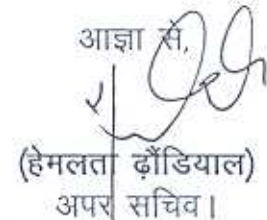 आज्ञा से,
(हेमलता ढ़ौंडियाल)
अपर सचिव।